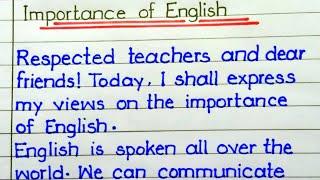 Importance of English
Respected teachers and dear
friends! Today, I shall express
my views on the importance
of English.
English is spoken all over the
world. We can communicate